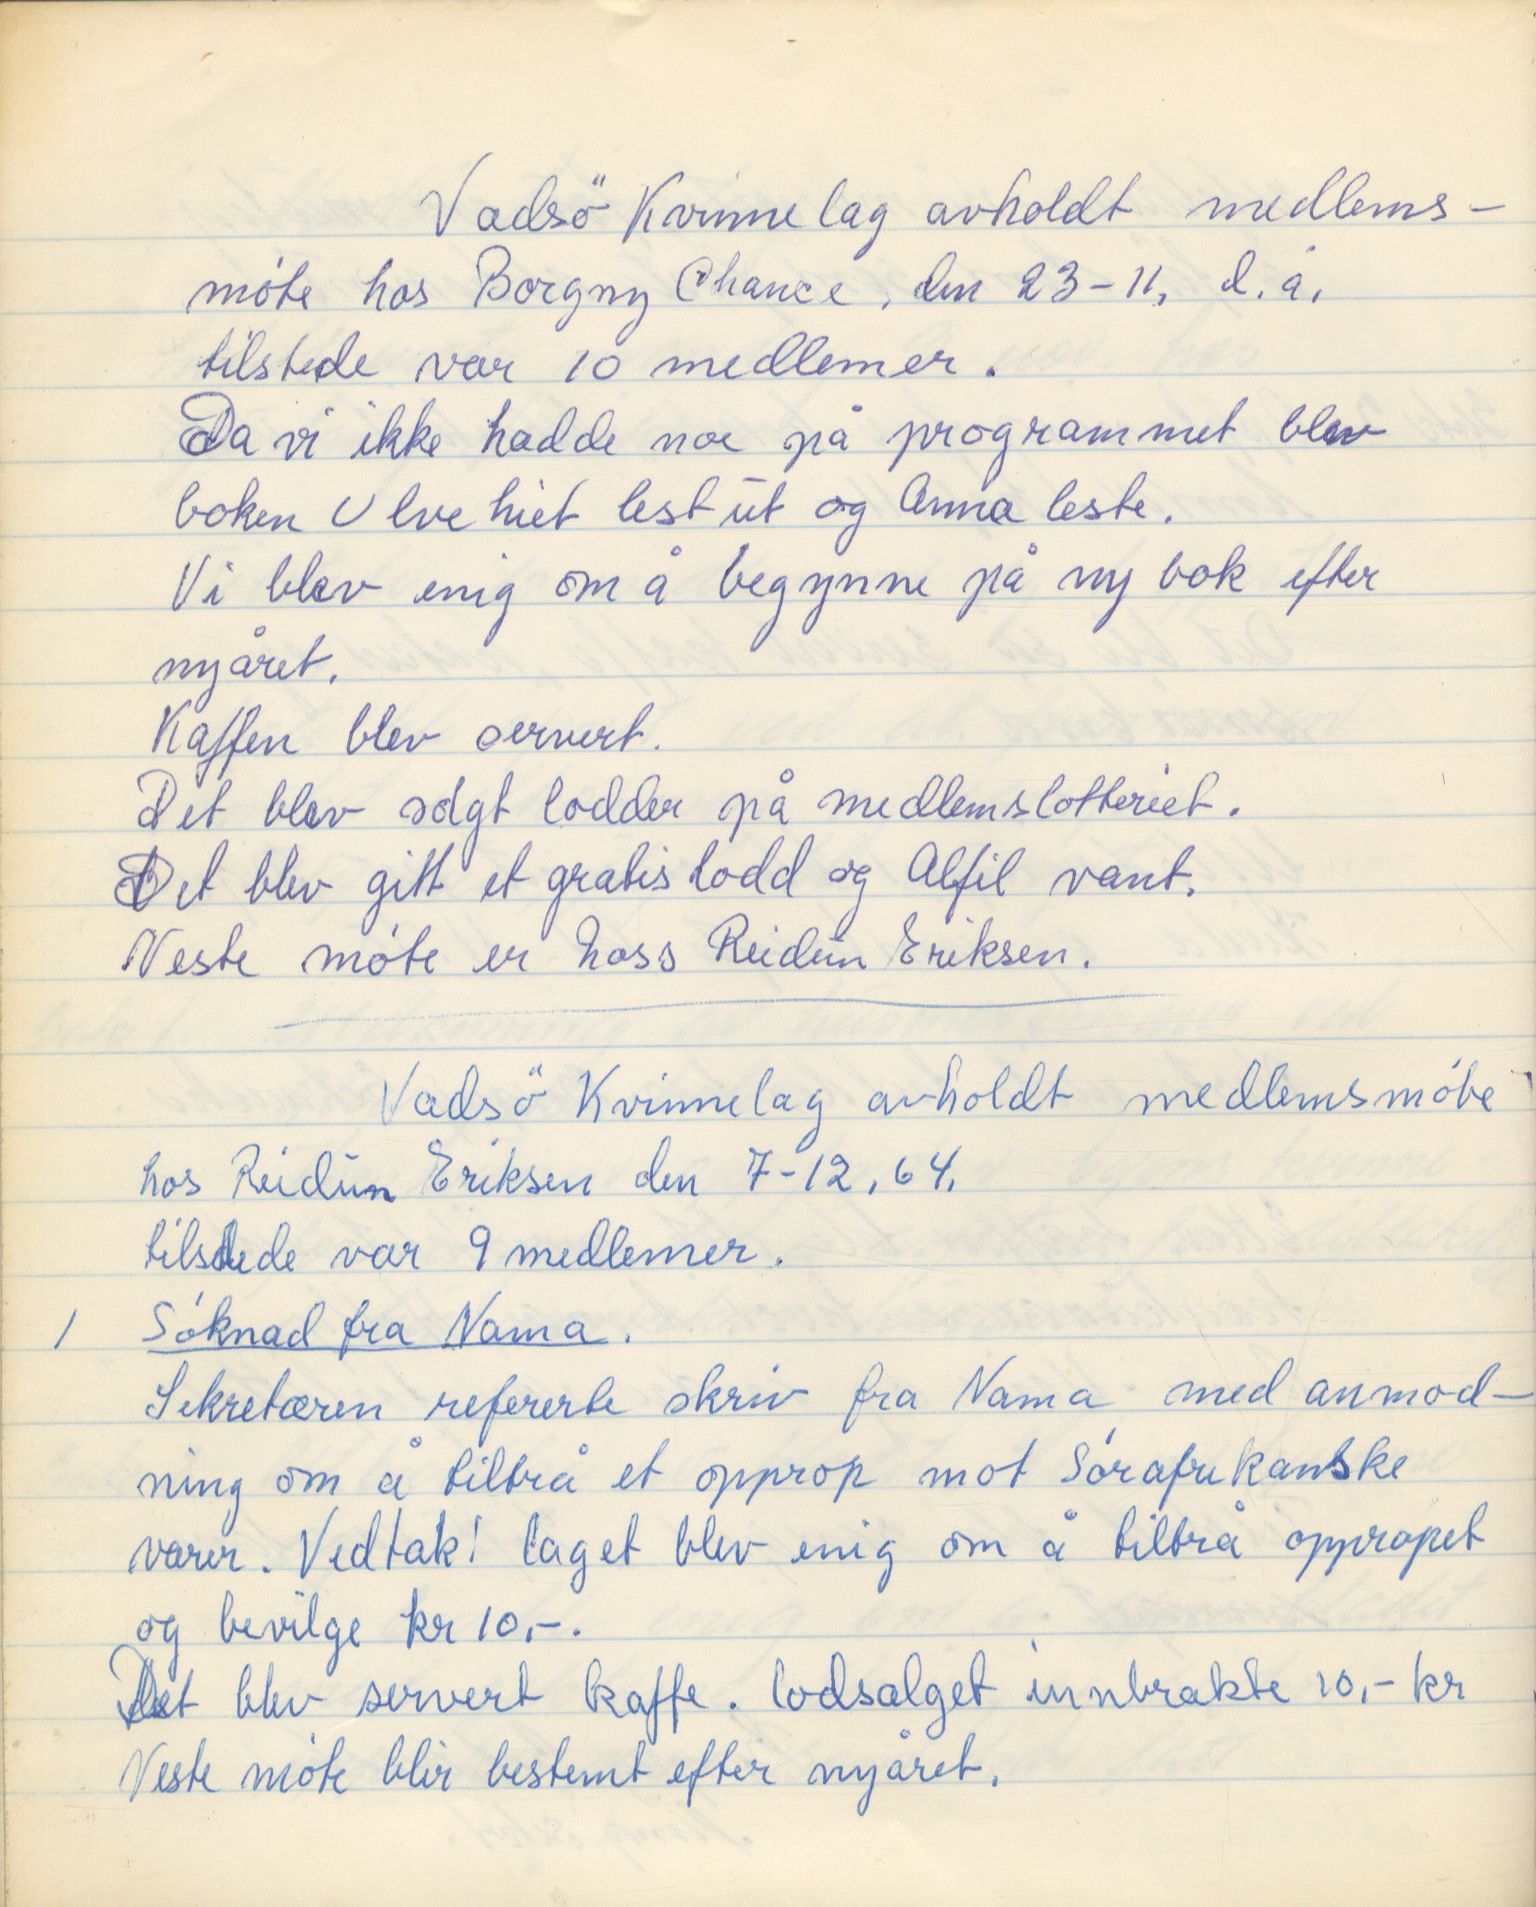 Vadsö Kvinnelag avholdt medlems-
møte hos Borgny Chance, den 23-11, d.å.
tilstede var 10 medlemer.
Da vi ikke hadde noe på programmet blev
boken Ulvehiet lest ut og Anna leste.
Vi blev enig om å begynne på ny bok efter
nyåret.
Kaffen blev servert.
Det blev solgt lodder på medlemslotteriet.
Det blev gitt et gratis lodd og Alfil vant.
Neste møte er hoss Reidun Eriksen.
Vadsö Kvinnelag avholdt medlemsmøte
hos Reidun Eriksen den 7-12.64.
tilstede var 9 medlemer.
1 Søknad fra Nama.
Sekretæren refererte skriv fra Nama med anmod-
ning om å tiltrå et opprop mot Sørafrikanske
varer. Vedtak! laget blev enig om å tiltrå oppropet
og bevilge kr 10,-.
Det blev servert kaffe. lodsalget innbrakte 10,- kr
Neste møte blir bestemt efter nyåret.